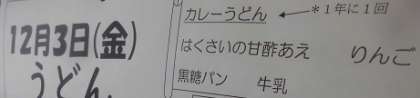 12月3日(金)
うどん
カレーうどん ←*1年に1回
はくさいの甘酢あえ りんご
黒糖パン 牛乳